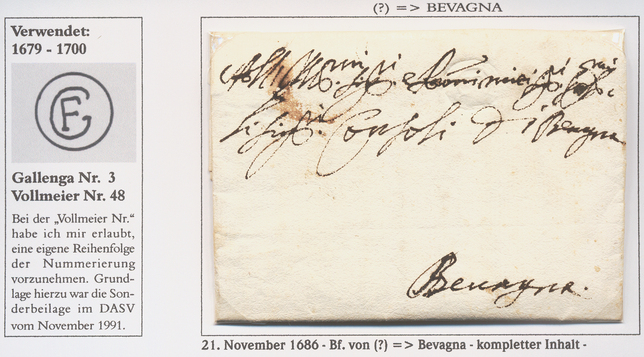 (?) => BEVAGNA
Verwendet:
1679 - 1700
GF
Gallenga Nr. 3
Vollmeier Nr. 48
Bei der „Vollmeier Nr.“
habe ich mir erlaubt,
eine eigene Reihenfolge
der Nummerierung
vorzunehmen. Grund-
lage hierzu war die Son-
derbeilage im DASV
vom November 1991.
Consoli di Bevagna
Bevagna.
21. November 1686 - Bf. von (?) => Bevagna - kompletter Inhalt -